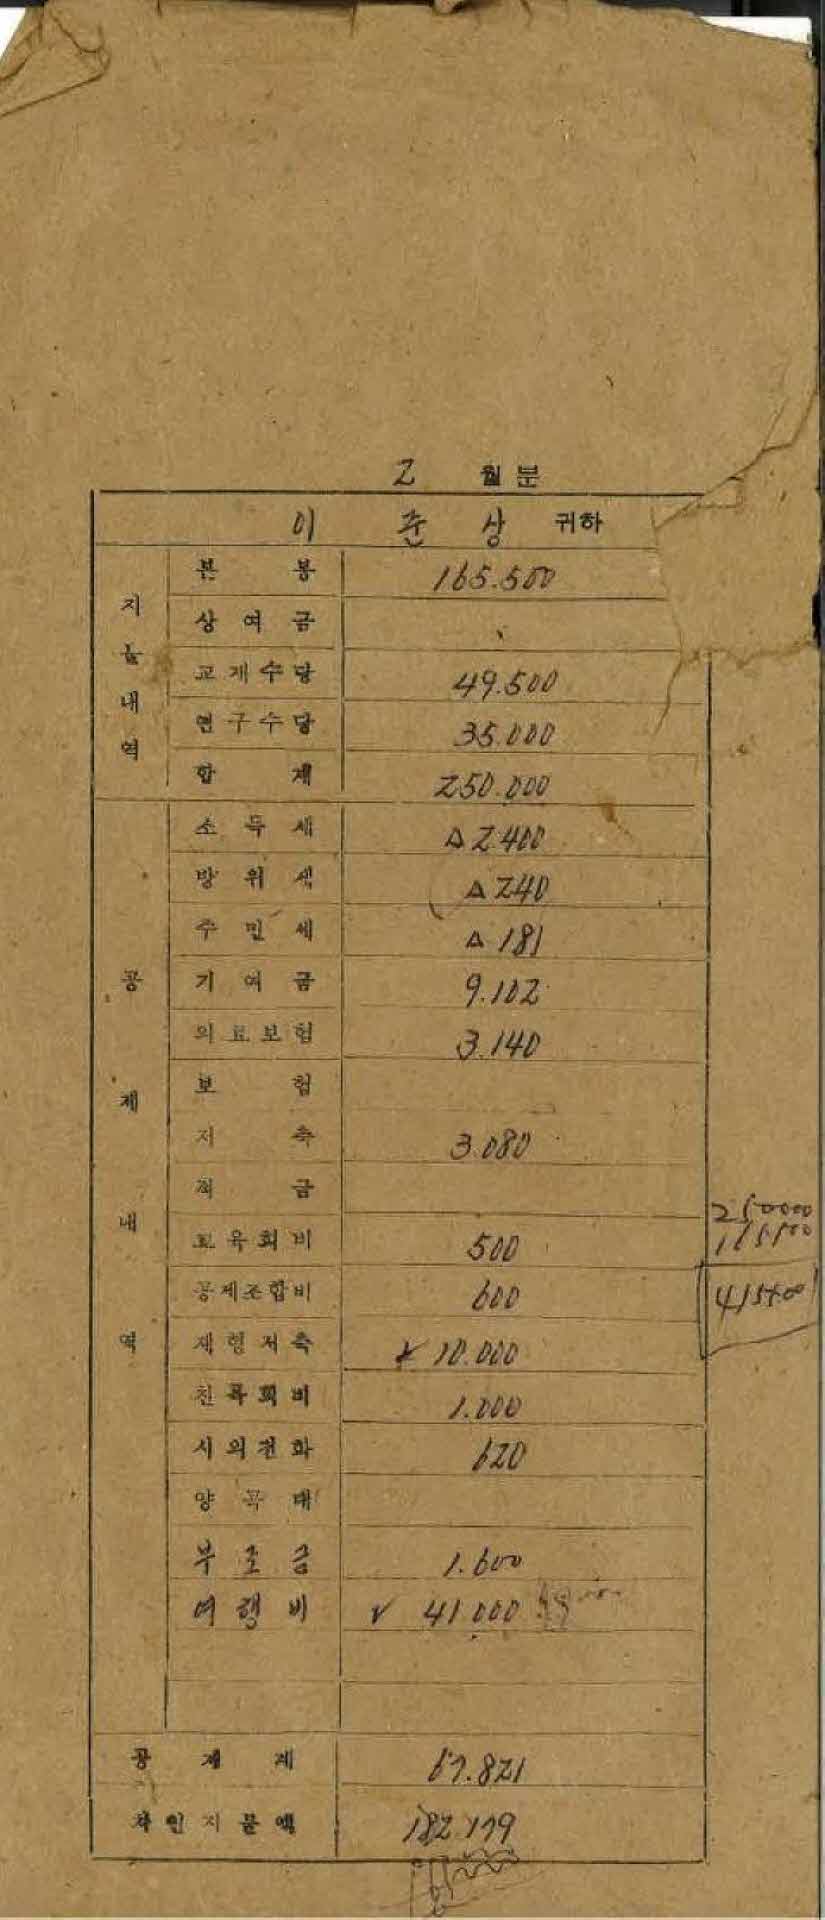 2 월분
이 준 상 귀하
지불내역
본 봉 165.500
상 여 금
교재수당 49.500
연구수당 35.000
합 계 250.000
공 제 내 역
소 득 세 △2.400
방 위 세 △240
주 민 세 △181
기 여 금 9.102
의료보험 3.140
보 험
저 축 3.080
적 금
교육회비 500
공제조합비 600
재형저축 ✓10.000
친목회비 1.000
시외전화 620
양 곡 대
부 조 금 1.600
여 행 비 ✓ 41000
공 제 계 67.821
차인지불액 182.179
250000
415500